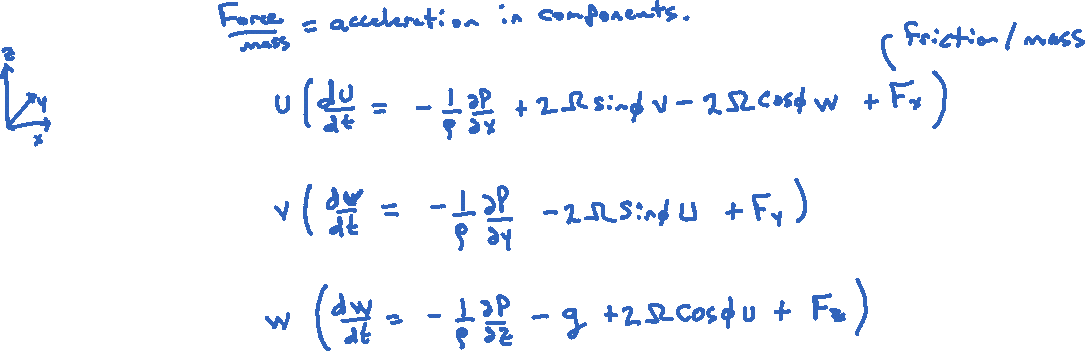 Force/mass = acceleration in components.
Friction/mass
z
y
x
u ( du/dt = - 1/ρ ∂P/∂x + 2Ω sinϕ v - 2Ω cosϕ w + Fx )
v ( dv/dt = - 1/ρ ∂P/∂y - 2Ω sinϕ u + Fy )
w ( dw/dt = - 1/ρ ∂P/∂z - g + 2Ω cosϕ u + Fz )